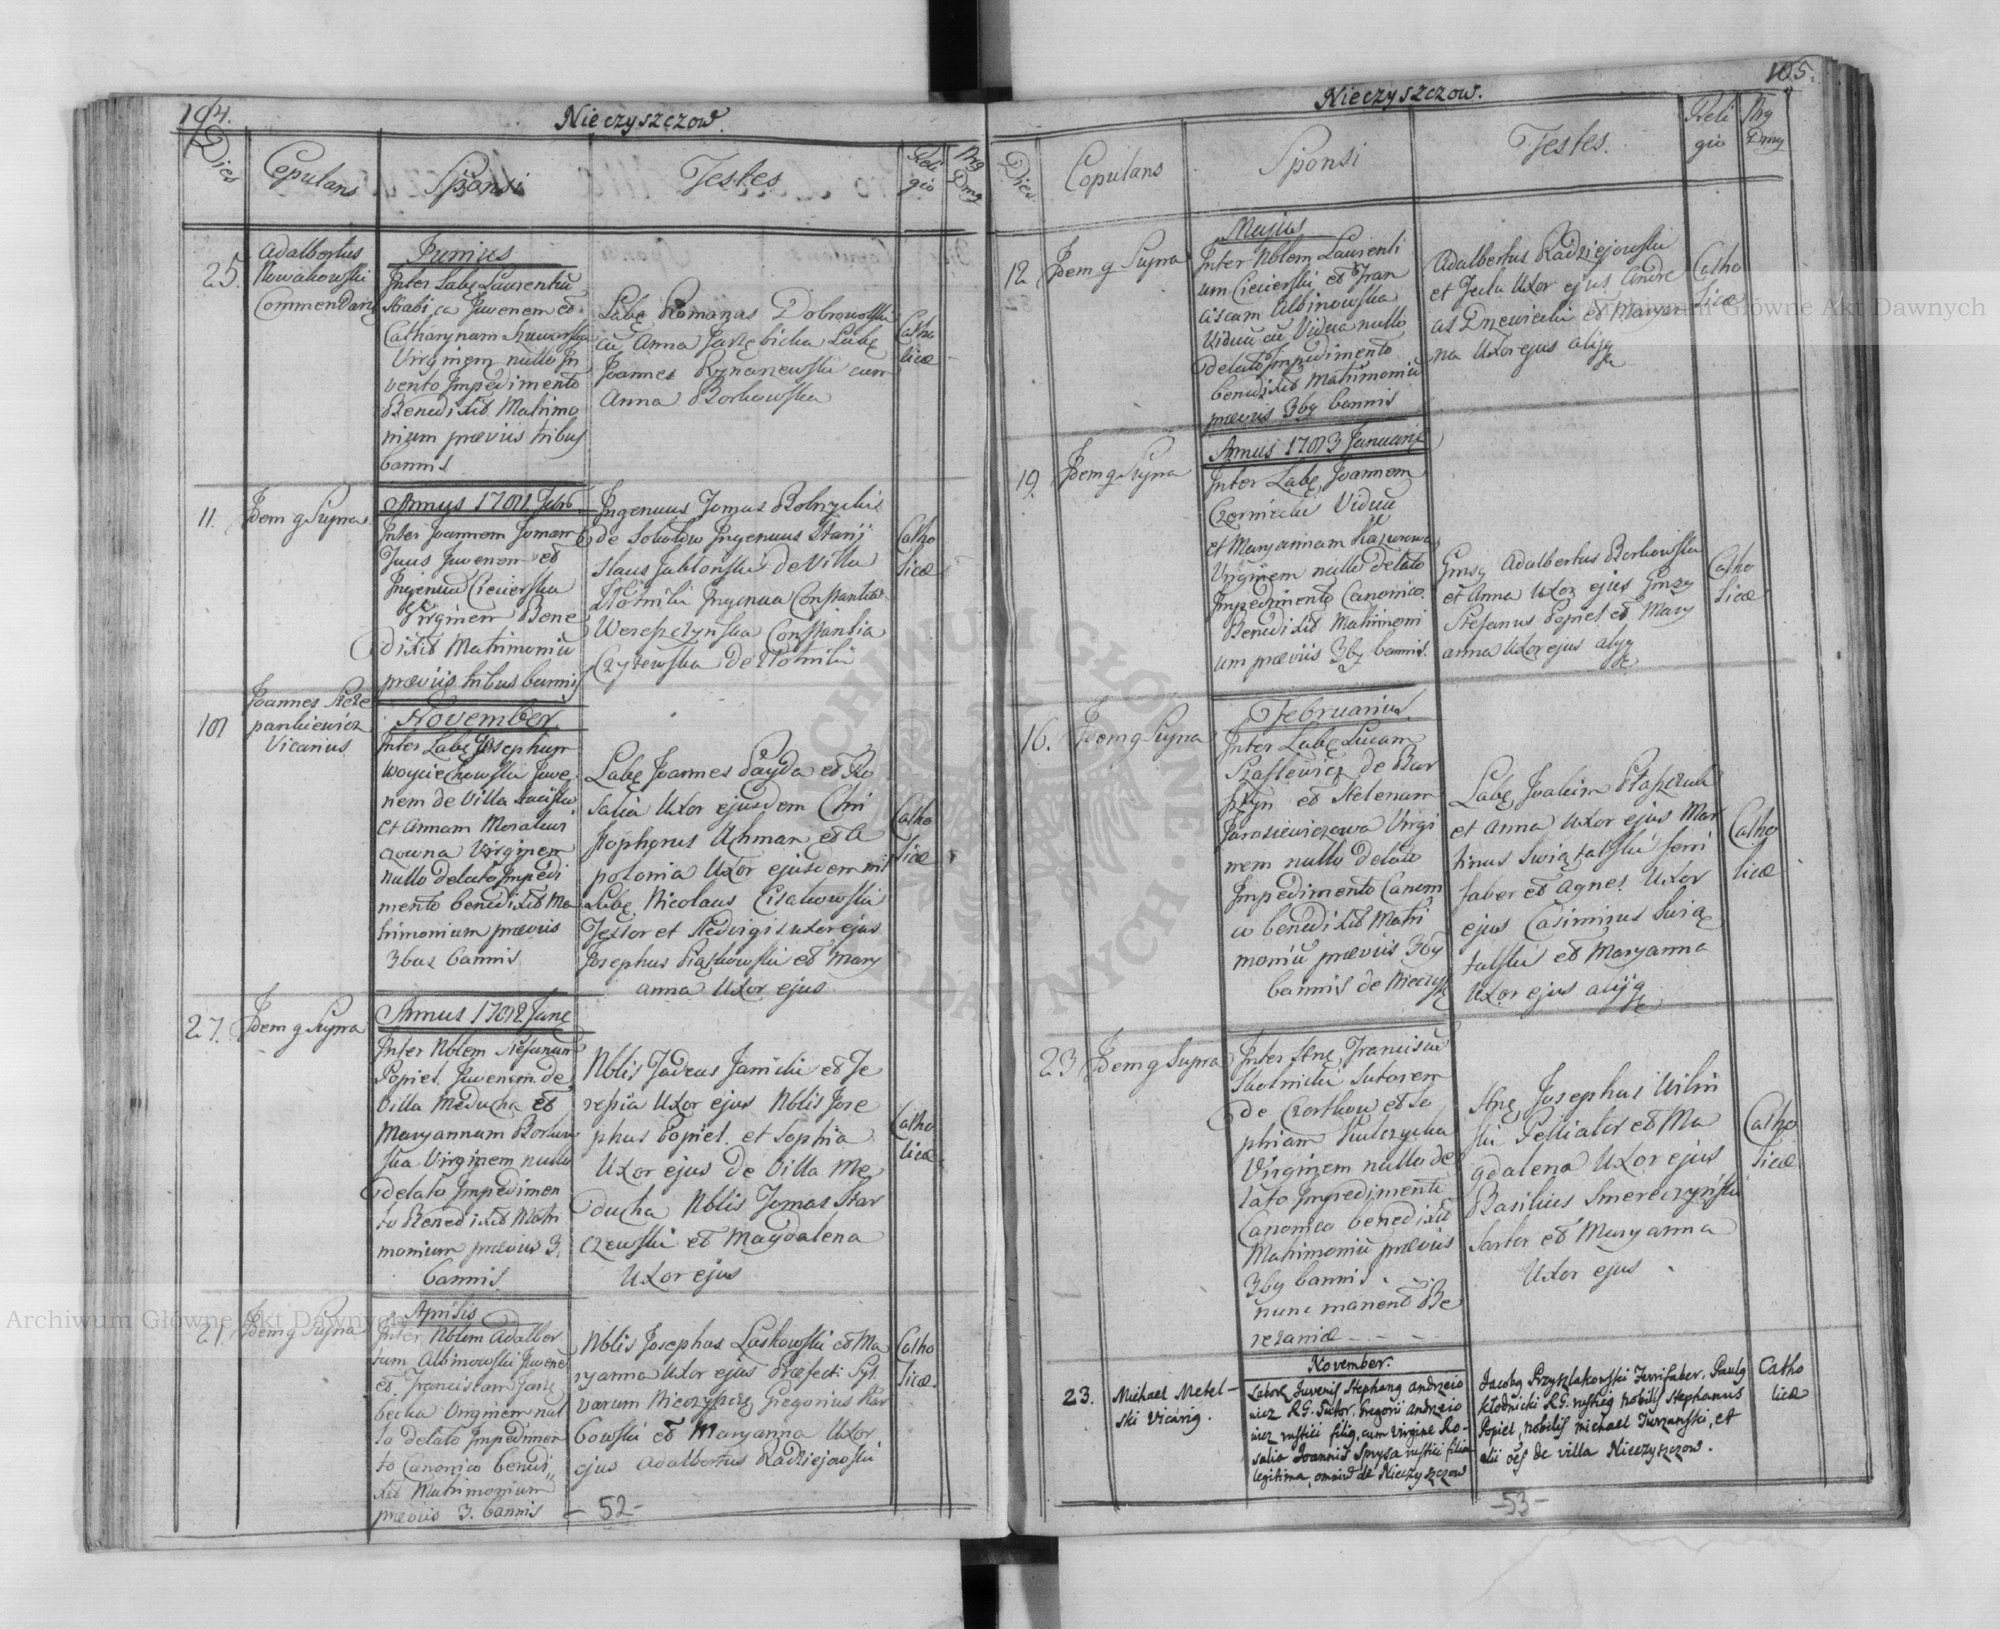 194.
Nieczyszczow.
Dies
Copulans
Sponsi
Testes
Reli
gio
Nrg
Dmg
25.
Adalbertus
Nowakowski
Commendarig
Junius
Inter Labę Laurentiū
Juvenem et
Catharynam
Virginem nullo In
vento Impedimento
Benedixit Matrimo
nium præviis tribus
bannis
Labę Romanas Dobrowolski
cū Anna Jarzębicka Labę
Joannes cum
Anna Borkowska
Catho
licæ
11.
Idem q Supra
Annus Febr
Inter Joannem Joman
Juvenem et
Ingenuā Cieierska
Virginem Bene
dixit Matrimoniū
præviis tribus bannis
Ingenuus Tomas Bobrzydis
de Sokolow Ingenuus Stani
slaus Jabłonski de Villa
Złotniki Ingenua Constantia
Wereszczynska Constantia
Czyzewska de Złotniki
Catho
licæ
Joannes Szcze
pankiewicz
Vicarius
November
Inter Labę Josephum
Woyciechowski Juve
nem de Villa
et Annam Morakowi
czowna Virginem
nullo delato Impedi
mento benedixit Ma
trimonium præviis
3bus bannis
Labę Joannes Payda et Ro
salia Uxor ejusdem Chri
stophorus Uhman et A
polonia Uxor ejusdem
Labę Nicolaus Cisakowski
Testor et Hedvigis uxor ejus
Josephus Piaskowski et Mary
anna Uxor ejus
Catho
licæ
27.
Idem q Supra
Annus
Inter Nblem Stefanum
Popiel Juvenem de
Villa Meducha et
Maryannam Borkow
ska Virginem nullo
delato Impedimen
to Benedixit Matri
monium præviis 3.
bannis
Nblis Tadeus Janicki et Te
resia Uxor ejus Nblis Jose
phus Popiel et Sophia
Uxor ejus de Villa Me
ducha Nblis Tomas Star
czewski et Magdalena
Uxor ejus
Catho
licæ
21.
Idem q Supra
Aprilis
Inter Nblem Adalber
tum Albinowski Juvenē
et Franciscam Jarzę
becka Virginem nul
lo delato Impedimen
to Canonico benedi
xit Matrimonium
præviis 3. bannis
Nblis Josephus Laskowski et Ma
ryanna Uxor ejus Præfect. Syl.
varum Nieczyszcz Gregorius Kar
bowski et Maryanna Uxor
ejus Adalbertus Radziejowski
Catho
licæ.
- 52 -
195.
Nieczyszczow.
Dies
Copulans
Sponsi
Testes.
Reli
gio
Nrg
Dmg
12
Idem q Supra
Majus
Inter Nblem Laurenti
um Cieierski et Fran
ciscam Albinowska
Viduū cū Vidua nullo
delato Impedimento
benedixit Matrimoniū
præviis 3bg bannis
Adalbertus Radziejowski
et Tecla Uxor ejus Andre
as Drzewiecki et Maryan
na Uxor ejus alijq
Catho
licæ
19.
Idem q Supra
Annus Januarig
Inter Labę Joannem
Czernicki Viduū
et Maryannam
Virginem nullo delato
Impedimento Canonico
Benedixit Matrimoni
um præviis 3bg bannis.
Gnrsg Adalbertus Borkowski
et Anna Uxor ejus Gnrsg
Stefanus Popiel et Mary
anna Uxor ejus alijq
Catho
licæ
16.
Idem q Supra
Februarius.
Inter Labę Lucam
Szaflewicz de Bur
sztyn et Helenam
Tarasiewiczowa Virgi
nem nullo delato
Impedimento Canoni
co benedixit Matri
moniū præviis 3bg
bannis de Nieczysz
Labę Joakim Ptaszczuk
et Anna Uxor ejus Mar
tinus Swiątalski ferri
faber et Agnes Uxor
ejus Casimirus Swią
talski et Maryanna
Uxor ejus alijq
Catho
licæ
23
Idem q Supra
Inter Franciscū
Skolnicki Sutorem
de Czortkow et So
phiam Kulczycka
Virginem nullo de
lato Impedimento
Canonico benedixit
Matrimoniū præviis
3bg bannis.
nunc manent Be
rezaniæ
Josephus Wilin
ski Pelliator et Ma
gdalena Uxor ejus
Basilius Smereczyński
Sartor et Maryanna
Uxor ejus
Catho
licæ
23.
Michael Metel-
ski Vicarig.
November.
Juvenis Stephang Andrzeio
wicz R.G. Sutor, Gregorii Andrzeio
wicz rustici filig, cum Virgine Ro-
salia Joannis Sprysa rustici filia
legitima, de Nieczyszczow
Jacobg Przyszlakowski Ferrifaber, Paulg
Kłodnicki R.G. rusticg Nobilis Stephanus
Popiel, nobilis Michael Turzanski, et
alii de villa Nieczyszczow.
Catho
licæ
- 53 -
Archiwum Główne Akt Dawnych
Archiwum Główne Akt Dawnych